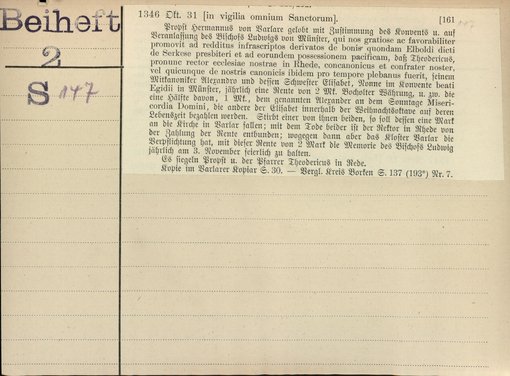 Beiheft
2
S 147
1346 Okt. 31 [in vigilia omnium Sanctorum]. [161
Propst Hermannus von Varlare gelobt mit Zustimmung des Konvents u. auf
Veranlassung des Bischofs Ludwigs von Münster, qui nos gratiose ac favorabiliter
promovit ad redditus infrascriptos derivatos de bonis quondam Elboldi dicti
de Serkese presbiteri et ad eorundem possessionem pacificam, daß Theodericus,
pronunc rector ecclesiae nostrae in Rhede, concanonicus et confrater noster,
vel quicunque de nostris canonicis ibidem pro tempore plebanus fuerit, seinem
Mitkanoniker Alexandro und dessen Schwester Elisabet, Nonne im Konvente beati
Egidii in Münster, jährlich eine Rente von 2 Mk. Bocholter Währung, u. zw. die
eine Hälfte davon, 1 Mk., dem genannten Alexander an dem Sonntage Miseri-
cordia Domini, die andere der Elisabet innerhalb der Weihnachtsoktave auf deren
Lebenszeit bezahlen werde. Stirbt einer von ihnen beiden, so soll dessen eine Mark
an die Kirche in Varlar fallen; mit dem Tode beider ist der Rektor in Rhede von
der Zahlung der Rente entbunden; wogegen dann aber das Kloster Varlar die
Verpflichtung hat, mit dieser Rente von 2 Mark die Memorie des Bischofs Ludwig
jährlich am 3. November feierlich zu halten.
Es siegeln Propst u. der Pfarrer Theodericus in Rede.
Kopie im Varlarer Kopiar S. 30. — Vergl. Kreis Borken S. 137 (193*) Nr. 7.